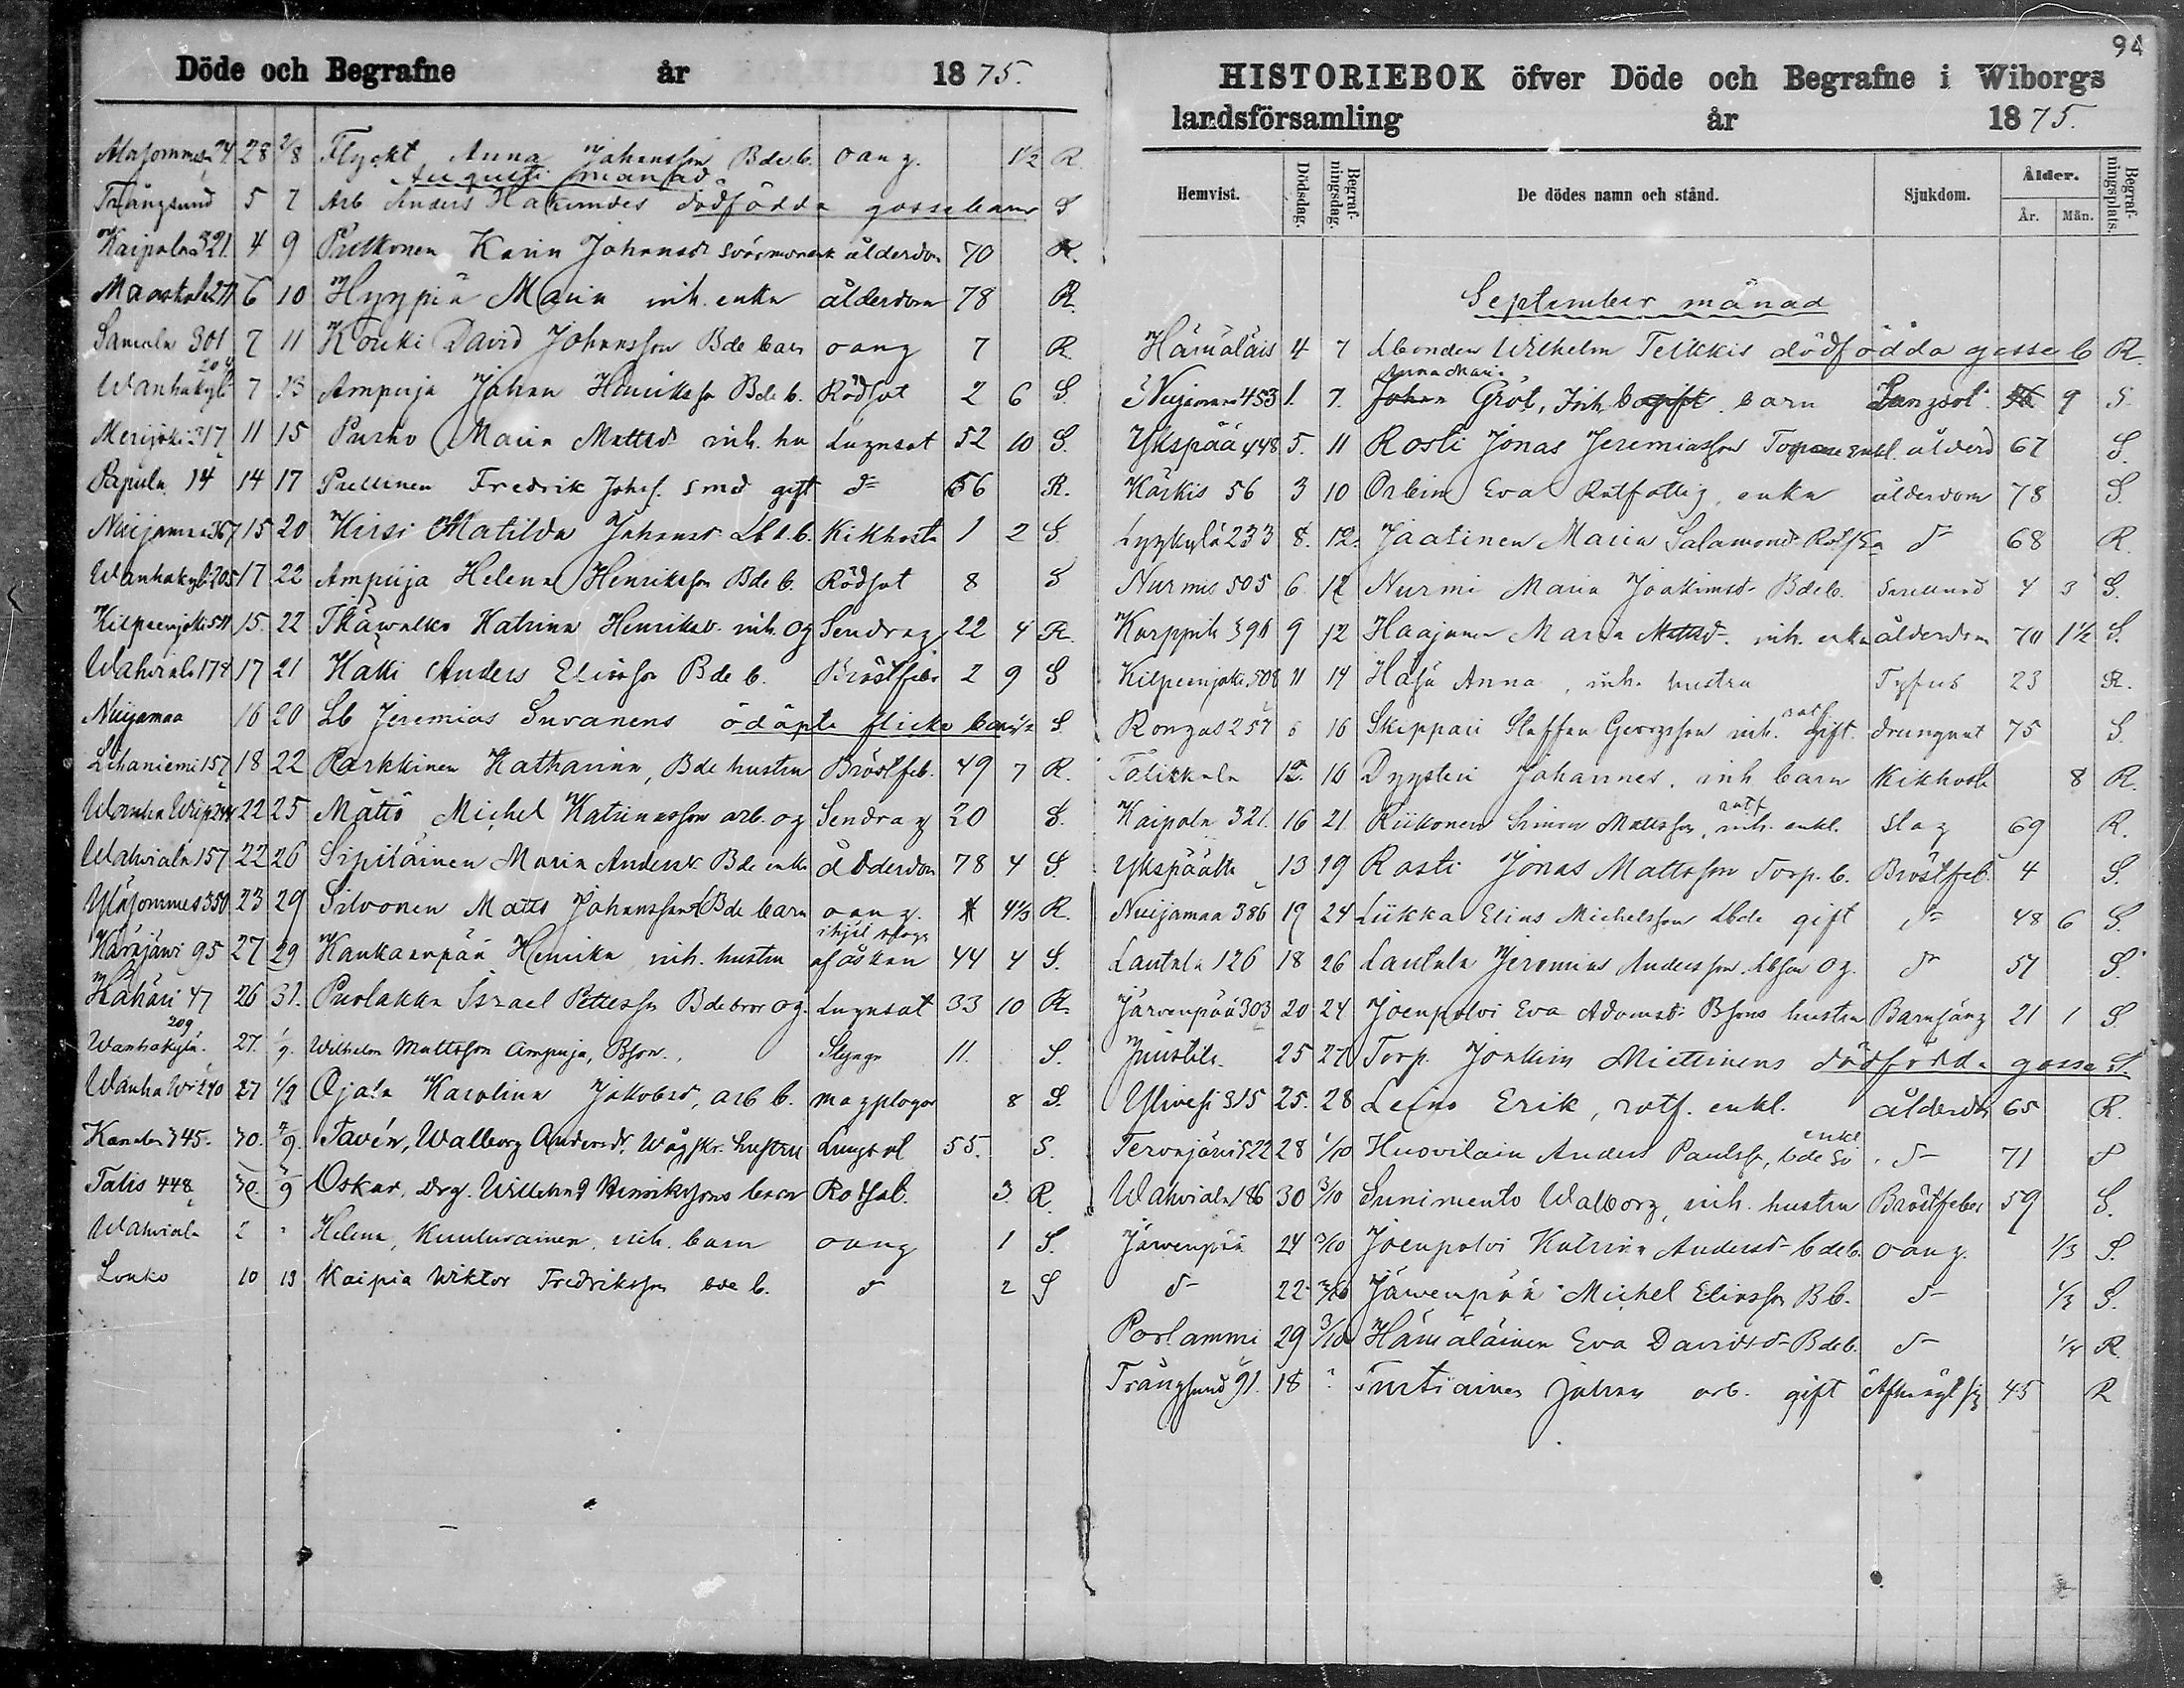 Döde och Begrafne år 1875.
Alasommes 74 28 2/8 Flyckt Anna Johansson Bdeb. oang. 1½ R
Augusti månad
Trångsund 5 7 Arb Anders Hakomäes dödfödda gossebarn S
Kaipola 321. 4 9 Pulkonen Karin Johansdr svärmor enk ålderdom 70 R.
Maaskola 277 6 10 Hyypiä Maria inh. enka ålderdom 78 R.
Samola 301 7 11 Kouki David Johansson Bde barn oang 7 R
204
Wanhakylä 7 13 Ampuja Johan Henriksson Bde b. Rödsot 2 6 S.
Merijoki 317 11 15 Purho Maria Mattsdr inh. hu Lungsot 52 10 S.
Papula 14 14 17 Pullinen Fredrik Johsf. smed gift do 56 R.
Nuijamaa 367 15 20 Kirsi Matilda Johansdr Lbd.b. Kikhosta 1 2 S
Wanhakylä 205 17 22 Ampuja Helena Henriksson Bde b. Rödsot 8 S
Kilpeenjoki 511 15. 22 Ikäwalko Katrina Henriksd. inh. og Sendrag 22 4 R.
Wahviala 174 17 21 Kälki Anders Eliasson Bde b. Bröstfeb 2 9 S
Nuijamaa 16 20 Lb Jeremias Suvanens odöpta flicke barn S.
Lihaniemi 157 18 22 Parkkinen Katharina, Bde hustru Bröstfeb. 49 7 R.
Wanha Wiip 244 22 25 Mättö Michel Katrinasson arb. og Sendrag 20 S.
Wahviala 157 22 26 Sipiläinen Maria Andersd. Bde enka ålderdom 78 4 S.
Yläsommes 350 23 29 Silvonen Matts Johansson Bde barn oang. 4½ R.
ihjel slags
Kärajärvi 95 27 29 Kankaanpää Henrika inh. hustru af åskan 44 4 S.
Hähäri 47 26 31. Puolakka Israel Pettersson Bde bror og. Lungsot 33 10 R.
209
Wanhakylä. 27. 1/9. Wilhelm Mattsson Ampuja, Bson. Slag 11. S.
Wanha Wi 240 27 1/9 Ojala Karolina Jakobsd, arb b. magplågor 8 S.
Kanala 345. 30. 4/9. Tavén, Walborg Andersdr. Wågskr. hustru Lungsot 55. S.
Talis 448 30. 5/9 Oskar, Drg. Willehad Henrikssons barn Rödsot. 3 R.
Wahviala Helena, Kuuluvainen. inh. barn oang 1 S.
Louko 10 13 Kaipia Wiktor Fredriksson bde b. do 2 S
94
HISTORIEBOK öfver Döde och Begrafne i Wiborgs
landsförsamling år 1875.
Hemvist. Dödsdag. Begrafningsdag. De dödes namn och stånd. Sjukdom. Ålder. År. Mån. Begrafningsplats.
September månad
Hämäläis 4 7 Lbonden Wilhelm Teikkis dödfödda gosse b R
Anna Mari
Nuijamaa 453 1. 7. Johan Gröt, Inh. barn Lungsot. 9 S.
Ykspää 448 5. 11 Rosti Jonas Jeremiasson Torpare enkl. ålderd 67 S.
Kärkis 56 3 10 Orbin Eva Rotfattig, enka ålderdom 78 S.
Lyykylä 233 8. 12. Jaatinen Maria Salamonsd. Rotf Ea do 68 R.
Nurmis 505 6. 12 Nurmi Maria Joakimsdr Bdeb. 4 3 S.
Karppila 396 9 12 Haajanen Maria Mattsdr. inh. enka ålderdom 70 1½ S.
Kilpeenjoki 508 11 14 Häsä Anna, inh. hustru Tyfus 23 R.
Rongas 257 16 Skippari Staffan Georgsson inh. rotf gift. drunknat 75 S.
Tälikkälä 12. 16 Dyysteri Johannes. inh barn Kikhosta 8 R.
Kaipola 321. 16 21. Riikonen Simon Mattsson, rotf inh. enkl. slag 69 R.
Ykspäältä 13 19 Rasti Jonas Mattsson Torp. b. Bröstfeb. 4 S.
Nuijamaa 386 19 24 Liikka Elias Michelsson Lbde gift do 48 6 S.
Lautala 126 18 26 Lautala Jeremias Andersson Lbson og. do 57 S.
Järvenpää 303 20 24 Joenpolvi Eva Adamsdr Bsons hustru Barnsäng 21 1 S.
Juustila. 25 27 Torp. Joakim Miettinens dödfödda gosse S.
Ylivesi 315 25. 28 Leino Erik, rotf. enkl. ålderdom 65 R.
Tervajärvi 522 28 1/10 Huovilain Anders Paulss, bde so enkl do 71 S
Wahviala 186 30 3/10 Sunimento Walborg, inh. hustru Bröstfeber 59 S.
Järvenpää 24 3/10 Joenpolvi Katrina Andersdr bdeb. oang. 1/3 S.
do 22 3/10 Järvenpää Michel Eliasson B b. do 1/3 S.
Porlammi 29 3/10 Hämäläinen Eva Davidsdr Bdeb. do R.
Trångsund 91. 18 Turtiainen Johan arb. gift 45 R